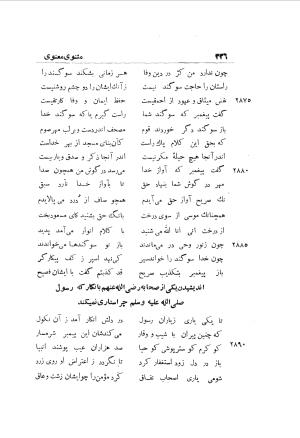 ۳۳۶ مثنوی معنوی
چون ندارد مرد کژ در دین وفا هر زمانی بشکند سوگند را
راستان را حاجت سوگند نیست زآنک ایشان را دو چشم روشنیست
۲۸۷۵ نقض میثاق و عهود از احمقیست حفظ ایمان و وفا کار تقیست
گفت پیغمبر که سوگند شما راست گیرم یا که سوگند خدا
باز سوگند دگر خوردند قوم مصحف اندر دست و بر لب مهر صوم
که بحق این کلام پاک راست کان بنای مسجد از بهر خداست
اندر آنجا هیچ حیلهٔ مکر نیست اندر آنجا ذکر و صدق و یاربیست
۲۸۸۰ گفت پیغمبر که آواز خدا می‌رسد در گوش من همچون صدا
مهر در گوش شما بنهاد حق تا بآواز خدا نارد سبق
نک صریح آواز حق می‌آیدم همچو صاف از درد می‌پالایدم
همچنانک موسی از سوی درخت بانگ حق بشنید کای مسعودبخت
از درخت انی انا الله می‌شنید با کلام انوار می‌آمد پدید
۲۸۸۵ چون ز نور وحی در می‌ماندند باز نو سوگندها می‌خواندند
چون خدا سوگند را خواند سپر کی نهد اسپر ز کف پیکارگر
باز پیغمبر بتکذیب صریح قد کذبتم گفت با ایشان فصیح
اندیشیدن یکی از صحابه رضی الله عنهم بانکار که رسول
صلی الله علیه و سلم چرا ستاری نمیکند
تا یکی یاری ز یاران رسول در دلش انکار آمد زآن نکول
که چنین پیران با شیب و وقار می‌کندشان این پیمبر شرمسار
۲۸۹۰ کو کرم کو سترپوشی کو حیا صد هزاران عیب پوشند انبیا
باز در دل زود استغفار کرد تا نگردد ز اعتراض او روی زرد
شومی یاری اصحاب نفاق کرد مؤمن را چو ایشان زشت و عاق